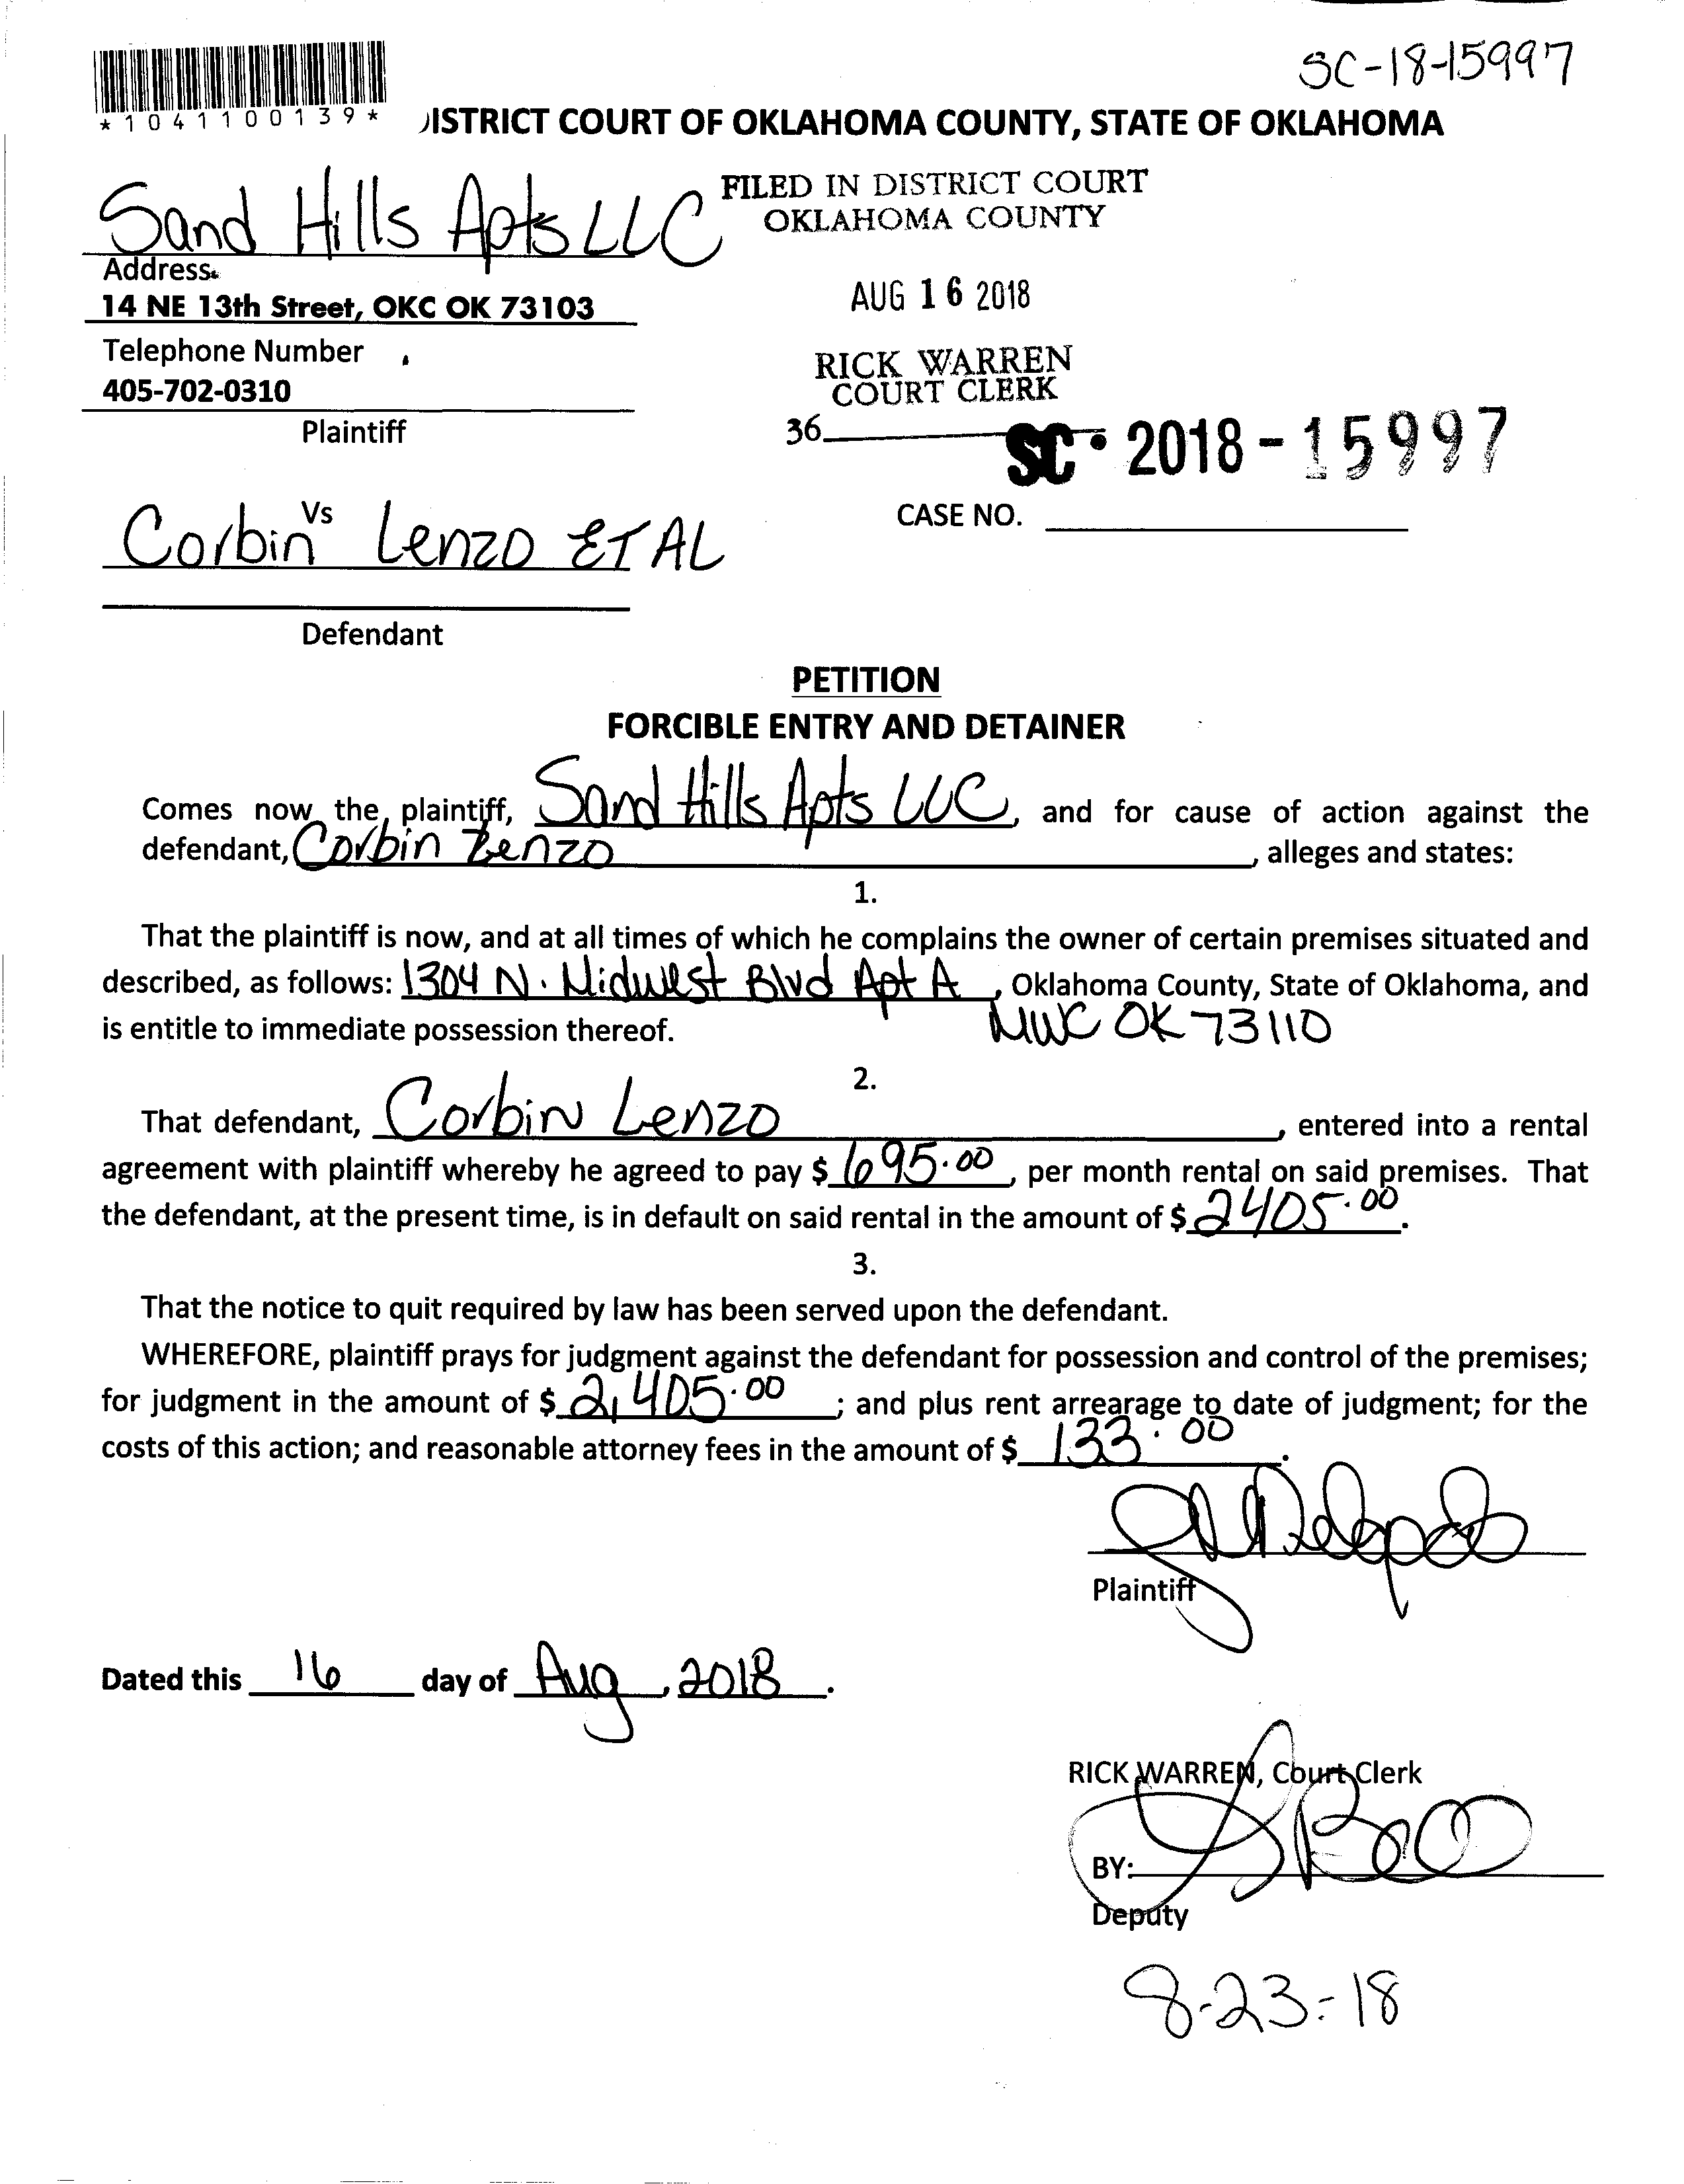 SC-18-15997
*1041100139*
DISTRICT COURT OF OKLAHOMA COUNTY, STATE OF OKLAHOMA
Sand Hills Apts LLC
FILED IN DISTRICT COURT
OKLAHOMA COUNTY
Address
14 NE 13th Street, OKC OK 73103
AUG 16 2018
Telephone Number
405-702-0310
RICK WARREN
COURT CLERK
Plaintiff
36
SC - 2018 - 15997
Vs
CASE NO.
Corbin Lenzo ET AL
Defendant
PETITION
FORCIBLE ENTRY AND DETAINER
Comes now the plaintiff, Sand Hills Apts LLC, and for cause of action against the
defendant, Corbin Lenzo, alleges and states:
1.
That the plaintiff is now, and at all times of which he complains the owner of certain premises situated and
described, as follows: 1304 N. Midwest Blvd Apt A, Oklahoma County, State of Oklahoma, and
is entitle to immediate possession thereof. MWC OK 73110
2.
That defendant, Corbin Lenzo, entered into a rental
agreement with plaintiff whereby he agreed to pay $ 695.00, per month rental on said premises. That
the defendant, at the present time, is in default on said rental in the amount of $ 2405.00.
3.
That the notice to quit required by law has been served upon the defendant.
WHEREFORE, plaintiff prays for judgment against the defendant for possession and control of the premises;
for judgment in the amount of $ 2,405.00; and plus rent arrearage to date of judgment; for the
costs of this action; and reasonable attorney fees in the amount of $ 133.00.
Plaintiff
Dated this 16 day of Aug, 2018.
RICK WARREN, Court Clerk
BY:
Deputy
8-23-18